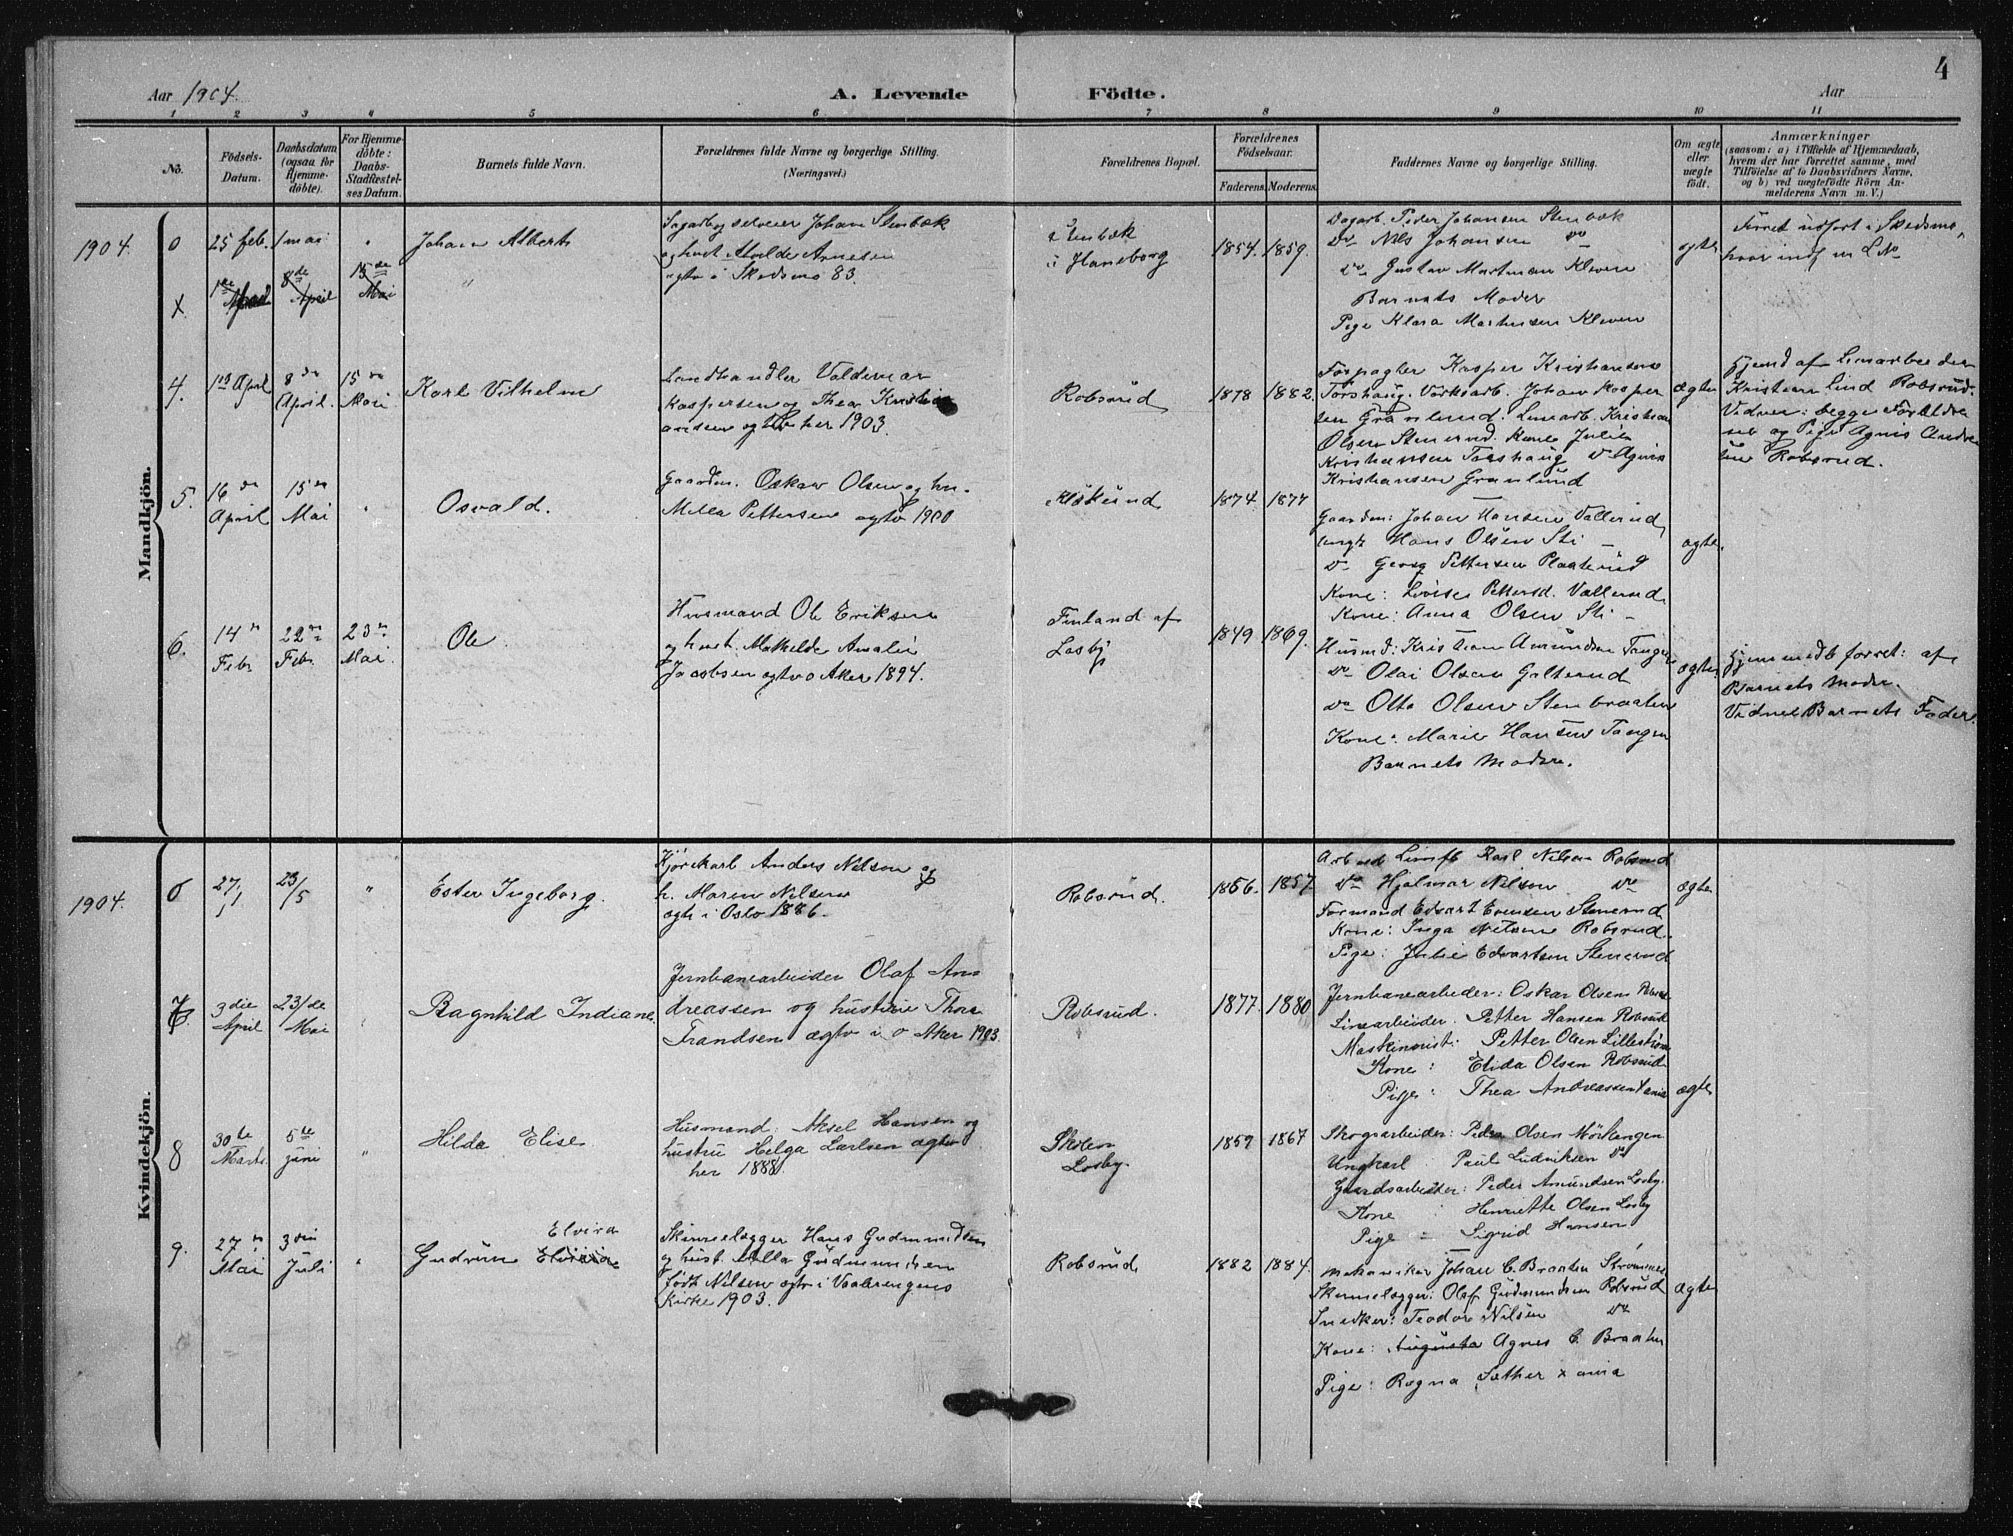 4
Aar 1904.
A. Levende Födte.
Aar
1 2 3 4 5 6 7 8 9 10 11
No.
Födsels-Datum.
Daabsdatum (ogsaa for Hjemmedöbte).
For Hjemmedöbte: Daabs-Stadfæstelses Datum.
Barnets fulde Navn.
Forældrenes fulde Navne og borgerlige Stilling.
(Næringsvei.)
Forældrenes Bopæl.
Forældrenes Födselsaar.
Faderens. Moderens.
Faddernes Navne og borgerlige Stilling.
Om ægte eller uægte födt.
Anmærkninger
(saasom: a) i Tilfælde af Hjemmedaab, hvem der har forrettet samme, med Tilföielse af to Daabsvidners Navne, og b) ved uægtefödte Börn Anmelderens Navn m. V.)
Mandkjön.
1904. 0 25 feb. 1 mai " Johan Albert
Johan Stenbæk
Arnesen
ægtv i Skedsmo 83.
Stenbæk
i Haneborg
1854. 1859.
Dagarb. Peder Johansen Stenbæk
Do Nils Johansen Do
Do Gustav Martinsen Kleven
Barnets Moder
Pige Klara Martinsen Kleven
ægte
x 1ste April 8de April 15de Mai "
4. 1ste April 8de April. 15de Mai. Karl Vilhelm
Landhandler Valdemar
Kaspersen og Thea Kristi
ansen ægtv her 1903.
Robsrud
1878 1882.
Kasper Kristiansen
Torshaug. Johan Kasper
sen Granlund. Limarb. Kristian
Olsen Stenerud. Kone Julie
Kristiansen Torshaug Do Agnes
Kristiansen Granlund
ægte
Hjemd af Limarbeider
Kristian Lind Robsrud.
Vidner: begge Forældre
og Pige Agnes Andre
sen Robsrud.
5. 16de April 15de Mai " Osvald.
Gaardm. Oskar Olsen og hu.
Milla Pettersen ægtv 1900
1874. 1877
Gaardm: Johan Hansen Vallerud
Hans Olsen Sti
Do Georg Pettersen
Kone: Lovise Pettersd. Vallerud
Kone: Anna Olsen Sti
ægte.
6. 14de Febr 22de Febr 23de Mai. Ole
Husmand Ole Eriksen
og hust. Mathilde Amalie
Jacobsen ægtv Ø Aker 1894.
Finland af
Losby
1849 1869.
Husmd: Kristian Amundsen Tangen
Do Olai Olsen Galterud
Do Otto Olsen Stenbraaten
Kone: Marie Hansen Tangen
Barnets Moder.
ægte
Hjemmedb forret: af
Barnets Moder.
Vidne Barnets Fader.
Kvindekjön.
1904. 6 27/1 23/5 " Ester Ingeborg.
Kjörekarl Anders Nilsen og
h. Maren Nilsen
ægtv i Oslo 1886.
Robsrud.
1856. 1857.
Arb ved Limfb Karl Nilsen Robsrud
Do Hjalmar Nilsen Do
Formand Edvart Evensen Stenerud
Kone: Inga Nilsen Robsrud.
Pige: Julie Edvartsen Stenerud
ægte
7 3die April 23/de Mai " Ragnhild Indiane.
Jernbanearbeider Olaf An-
dreassen og hustru Thora
Frandsen ægtv i Ø Aker 1903.
Robsrud.
1877. 1880
Jernbanearbeder: Oskar Olsen Robsrud
Limarbeider. Petter Hansen Robsrud
Maskinmist: Petter Olsen Lillestrøm
Kone: Elida Olsen Robsrud
Pige: Thea Andreassen
ægte
8 30te Marts. 5te Juni " Hilda Elise
Husmand: Aksel Hansen og
hustru Helga Larsen ægtv
her 1888
Skolen
Losby.
1859 1867
Skogsarbeider: Peder Olsen Mörkengen
Ungkarl Paul Ludviksen Do
Gaardsarbeider: Peder Amundsen Losby.
Kone: Henriette Olsen Losby
Pige: Sigrid Hansen
9. 27de Mai 3die Juli " Gudrun Elviria Elvira
Skinnelægger Hans Gudmundsen
og hust. Milla Gudmundsen
født Nilsen ægtv i Vaalerengens
Kirke 1903.
Robsrud
1882 1884.
Mekaniker Johan C. Braaten Strømmen
Skinnelægger: Olaf Gudmundsen Robsrud
Snedker: Teodor Nilsen Do
Kone: Augusta Agnes C. Braaten
Pige: Ragna Sæther x ania
ægte